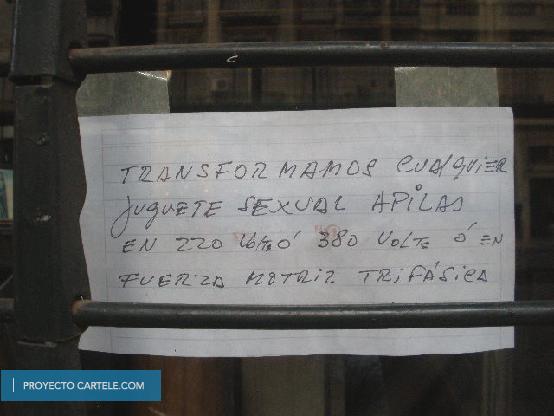 TRANSFORMAMOS CUALQUIER
JUGUETE SEXUAL A PILAS
EN 220 Volts Ó 380 VOLTS Ó EN
FUERZA MOTRIZ TRIFÁSICA
PROYECTO CARTELE.COM